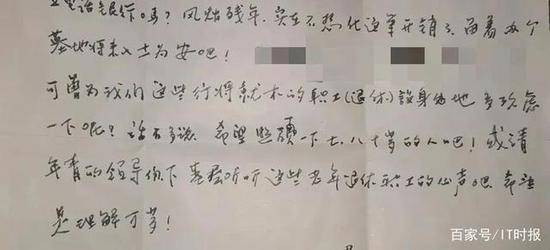 电话银行吗？风烛残年，实在不想化这笔开销了，留着办个
墓地将来入土为安吧！
可曾为我们这些行将就木的职工（退休）设身处地考虑
一下呢？话不多说，希望照顾一下七、八十岁的人吧！或请
年青的领导们下基层听听这些老年退休职工的心声吧，希望
是理解万岁！
百家号/IT时报